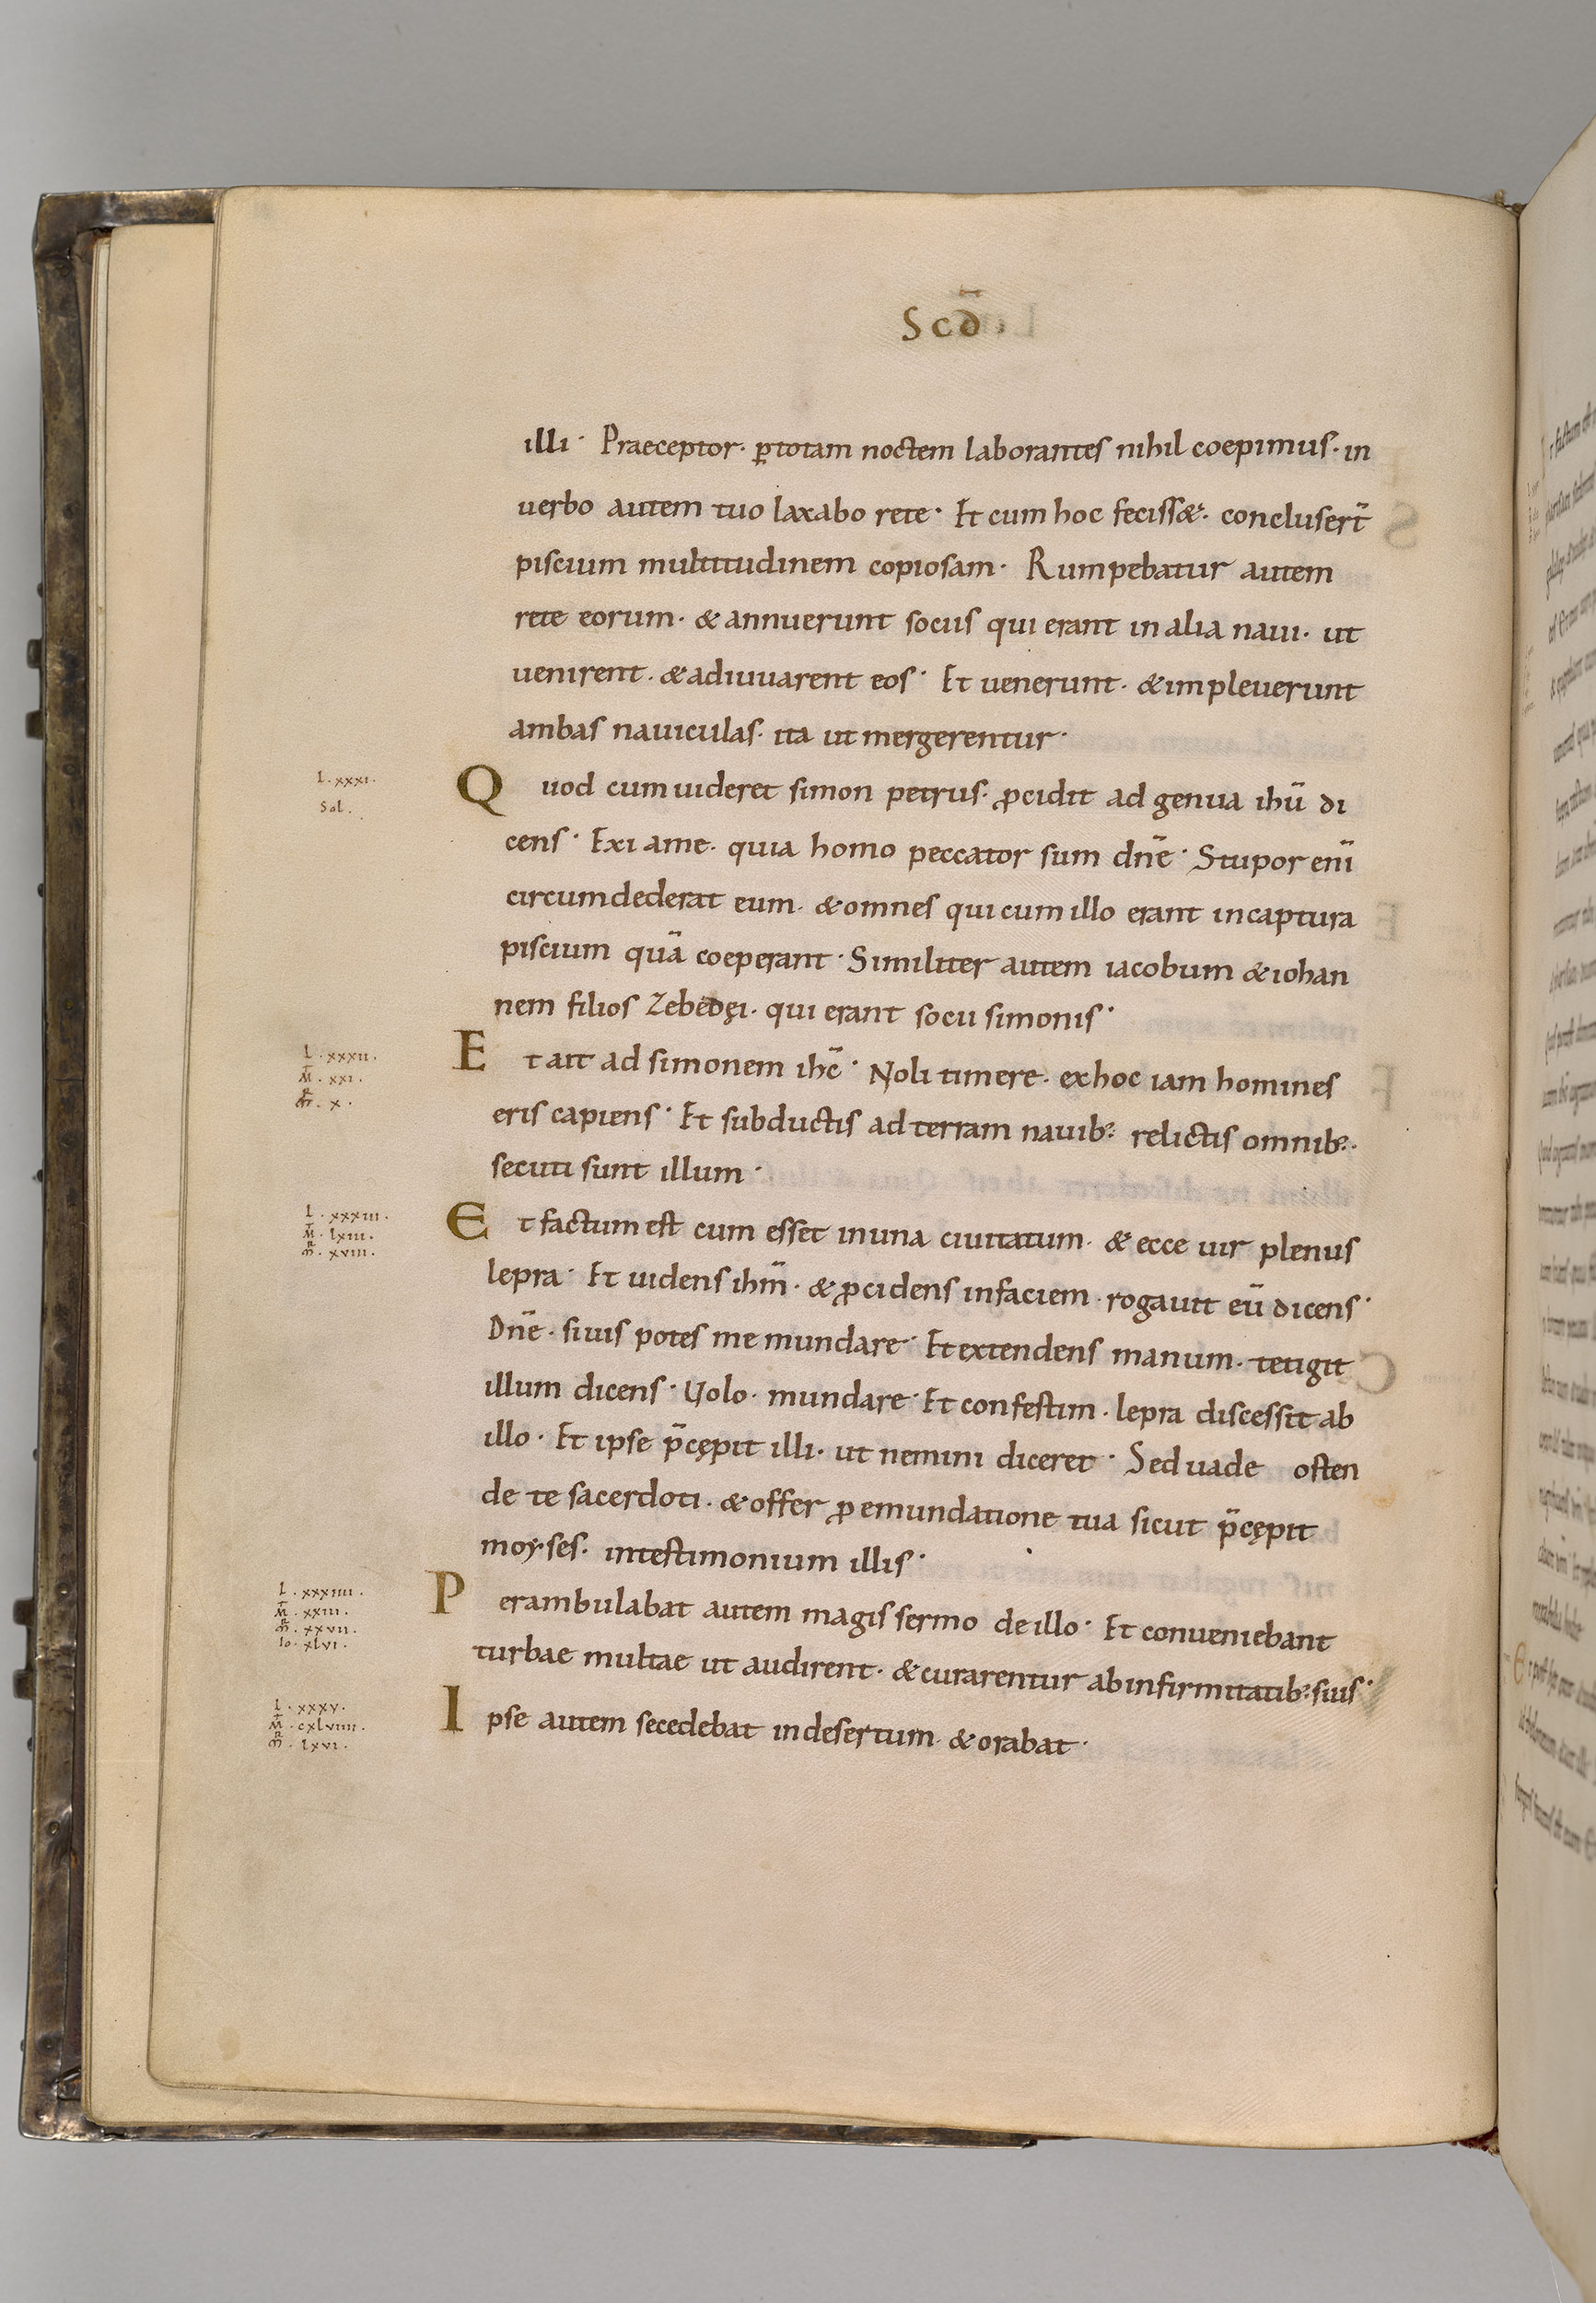 Scd̄
illi· Praeceptor· ꝑtotam noctem laborantes nihil coepimus· in
uerbo autem tuo laxabo rete· Et cum hoc feciss&· conclusert̄
piscium multitudinem copiosam· Rumpebatur autem
rete eorum· & annuerunt sociis qui erant in alia naui· ut
uenirent· & adiuuarent eos· Et uenerunt· & impleuerunt
ambas nauiculas· ita ut mergerentur·
L·xxxi·
Sol·
Quod cum uideret simon petrus· ꝓcidit ad genua ihū di
cens· Exi a me· quia homo peccator sum dnē· Stupor enī
circumdederat eum· & omnes qui cum illo erant in captura
piscium quā coeperant· Similiter autem iacobum & iohan
nem filios Zebedęi· qui erant socii simonis·
L·xxxii·
M̄·xxi·
m̄·x·
Et ait ad simonem ihc̄· Noli timere· ex hoc iam homines
eris capiens· Et subductis ad terram nauib;· relictis omnib;·
secuti sunt illum·
L·xxxiii·
M̄·lxiii·
m̄·xviii·
Et factum est cum esset in una ciuitatum· & ecce uir plenus
lepra· Et uidens ihm̄· & ꝓcidens in faciem· rogauit eū dicens·
Dnē· si uis potes me mundare· Et extendens manum· tetigit
illum dicens· Uolo· mundare· Et confestim· lepra discessit ab
illo· Et ipse p̄cępit illi· ut nemini diceret· Sed uade osten
de te sacerdoti· & offer ꝓ emundatione tua sicut p̄cępit
moyses· in testimonium illis·
L·xxxiiii·
M̄·xxiii·
m̄·xxvii·
Io·xlvi·
Perambulabat autem magis sermo de illo· Et conueniebant
turbae multae ut audirent· & curarentur ab infirmitatib; suis·
L·xxxv·
M̄·cxlviiii·
m̄·lxvi·
Ipse autem secedebat in desertum· & orabat·